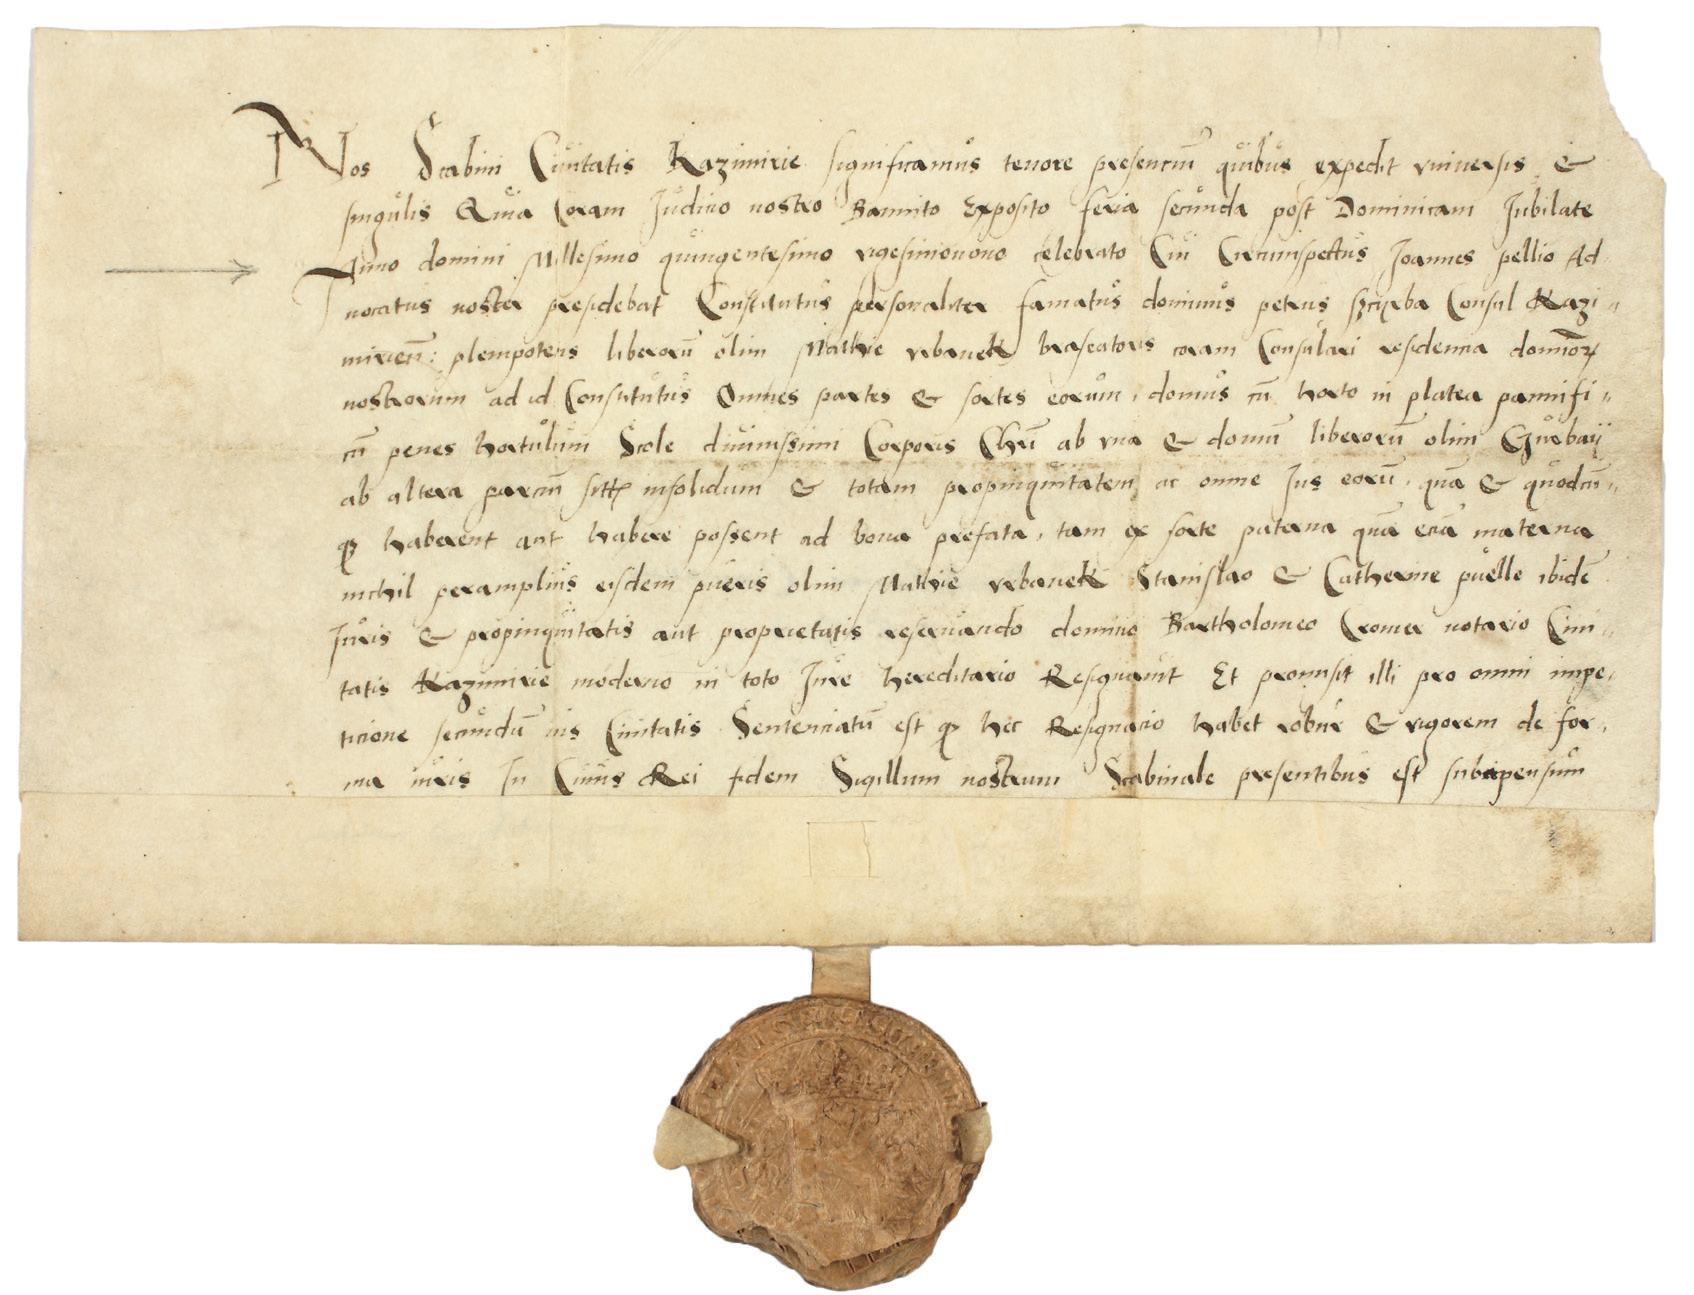 Nos Scabini Ciuitatis Kazimirie significamus tenore presenciu͞ quibus expedit vniuersis &
singulis Quia Coram Iudicio nostro Bannito Exposito feria secunda post Dominicam Iubilate
Anno domini Millesimo quingentesimo vigesimonono celebrato Cui Circumspectus Joannes pellio Ad-
uocatus noster presidebat Constitutus personaliter famatus dominus petrus Consul Kazi-
mirien͞: plenipotens liberoru͞ olim Mathie vrbanek braseatoris coram Consulari residencia dominoꝝ
nostrorum ad id Constitutus Omnes partes & sortes eorum, domus cu͞ horto in platea pannifi-
cu͞ penes hortulum Scole diuinissimi Corporis Chri͞ ab vna & domu͞ liberoru͞ olim Gurbaij
ab altera parciu͞ insolidum & totam propinquitatem ac omne Jus eoru͞, qua͞ & quodcu͞-
qȝ haberent aut habere possent ad bona prefata, tam ex sorte paterna qua͞ ecia͞ materna
nichil peramplius eisdem pueris olim Mathie vrbanek Stanislao & Catherine puelle ibide͞
Juris & propinquitatis aut proprietatis reseruando domino Bartholomeo Cromer notario Ciui-
tatis Kazimirie moderno in toto Jure hereditario Resignauit Et promisit illi pro omni impe-
ticione secundu͞ ius Ciuitatis Sentenciatu͞ est qȝ hec Resignacio habet robur & vigorem de for-
ma iuris In Cuius Rei fidem Sigillum nostrum Scabinale presentibus est subappensum